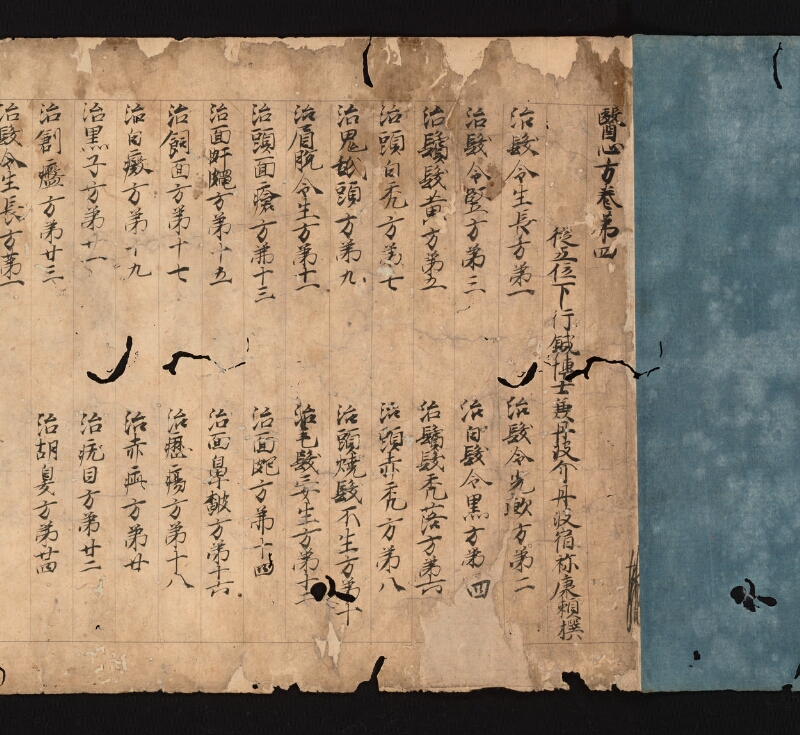 醫心方卷第四
従五位下行鍼博士兼丹波介丹波宿祢康頼撰
治髮令生長方第一
治髮令光軟方第二
治髮令堅方第三
治白髮令黒方第四
治鬚髮黄方第五
治鬚髮禿落方第六
治頭白禿方第七
治頭赤禿方第八
治鬼舐頭方第九
治頭焼髮不生方第十
治眉脱令生方第十一
治毛髮妄生方第十二
治頭面瘡方第十三
治面皰方第十四
治面䵟䵳方第十五
治面鼻皻方第十六
治飼面方第十七
治癧瘍方第十八
治白癜方第十九
治赤疵方第廿
治黒子方第廿一
治疣目方第廿二
治創瘢方第廿三
治胡臭方第廿四
治髮令生長方第一